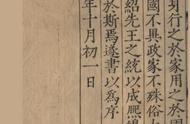 身行之於家用之於國
國不異政家不殊俗大
紹先王之統以成熙
於斯焉遂書以為序
年十月初一日